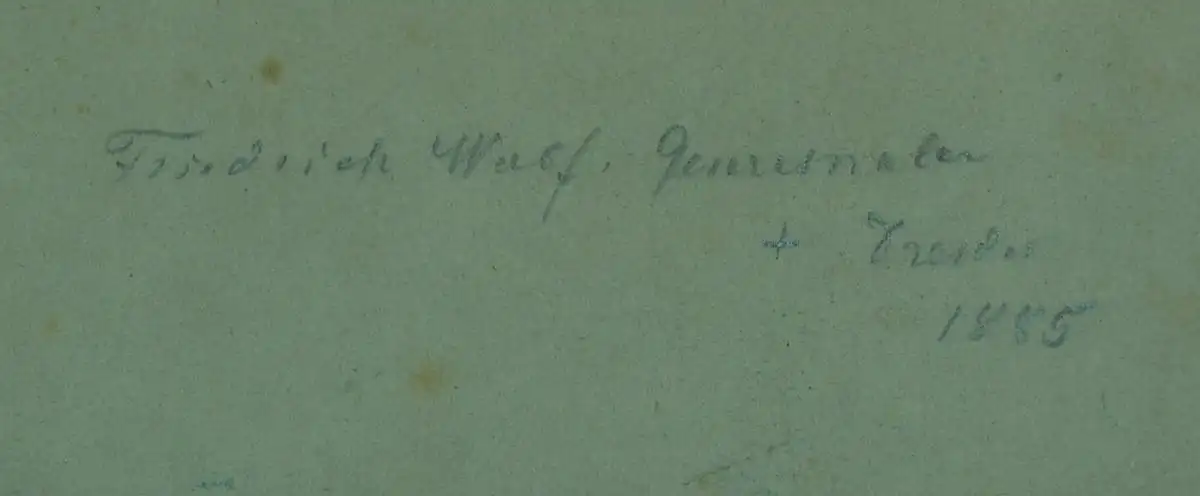 Friedrich Wolf. Genremaler
+ Dresden
1885